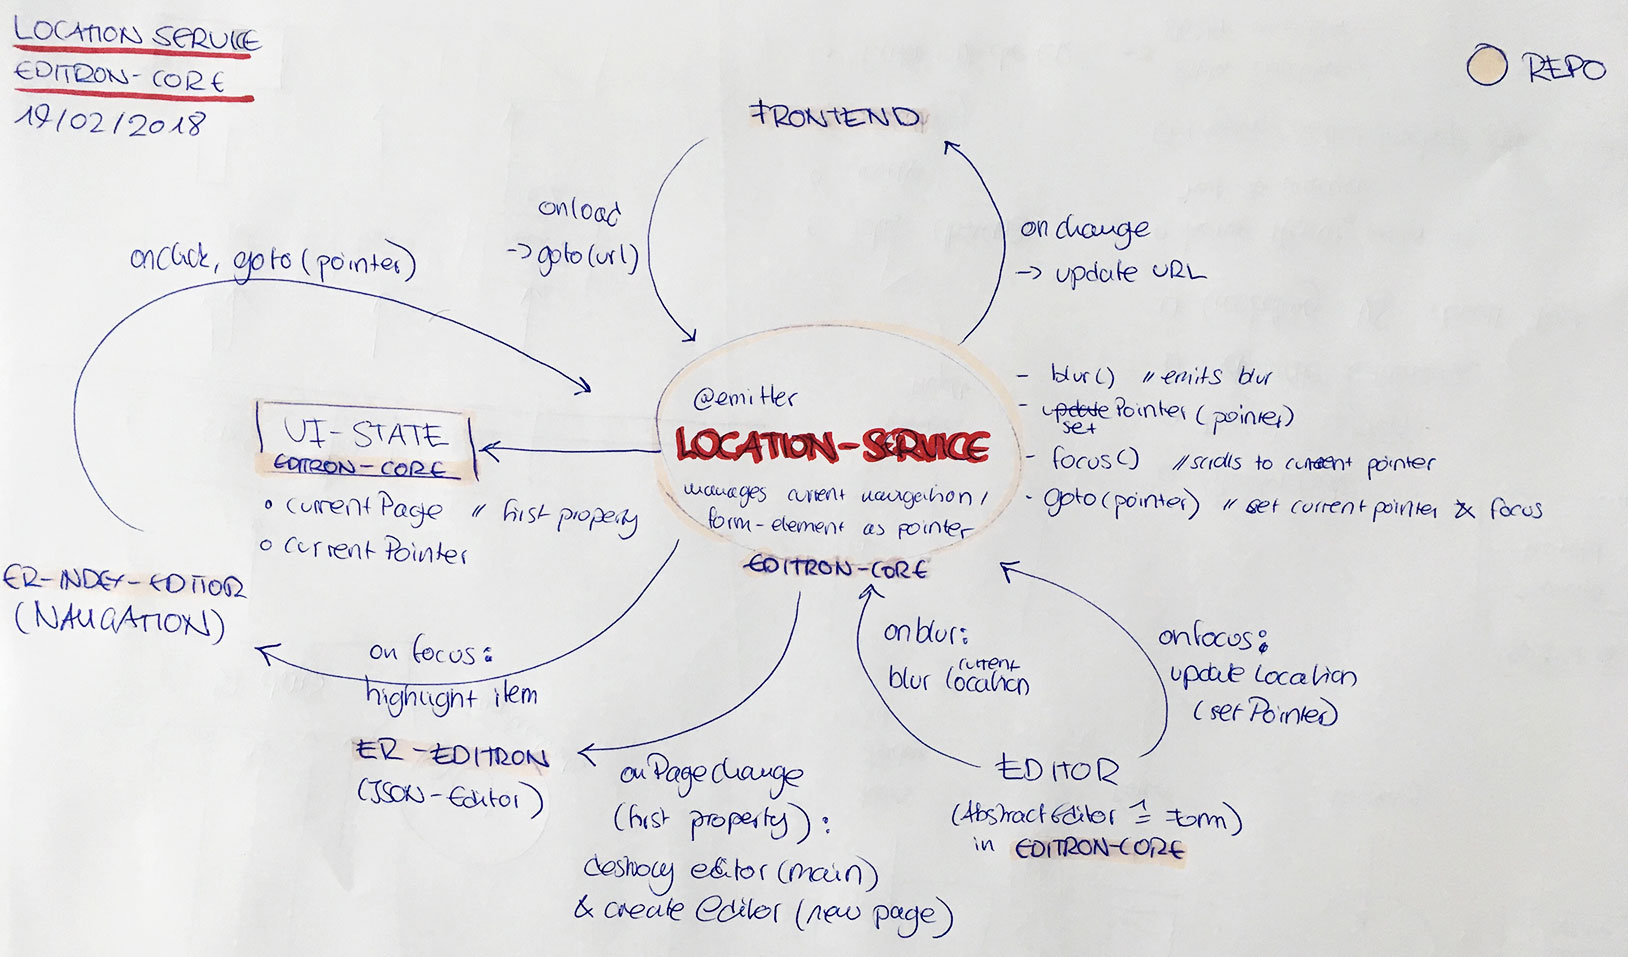 LOCATION SERVICE
EDITRON-CORE
19/02/2018
REPO
FRONTEND
onload
-> goto(url)
onchange
-> update URL
onclick, goto(pointer)
@emitter
LOCATION-SERVICE
manages current navigation/
form-element as pointer
EDITRON-CORE
- blur() // emits blur
- update Pointer (pointer)
set
- focus() // scrolls to current pointer
- goto(pointer) // set current pointer & focus
UI-STATE
EDITRON-CORE
• currentPage // first property
○ currentPointer
ER-INDEX-EDITIOR
(NAVIGATION)
on focus:
highlight item
ER-EDITRON
(JSON-Editor)
onPageChange
(first property):
destroy editor (main)
& create editor (new page)
onblur:
blur current location
onfocus:
update Location
(setPointer)
EDITOR
(AbstractEditor ≙ Form)
in EDITRON-CORE